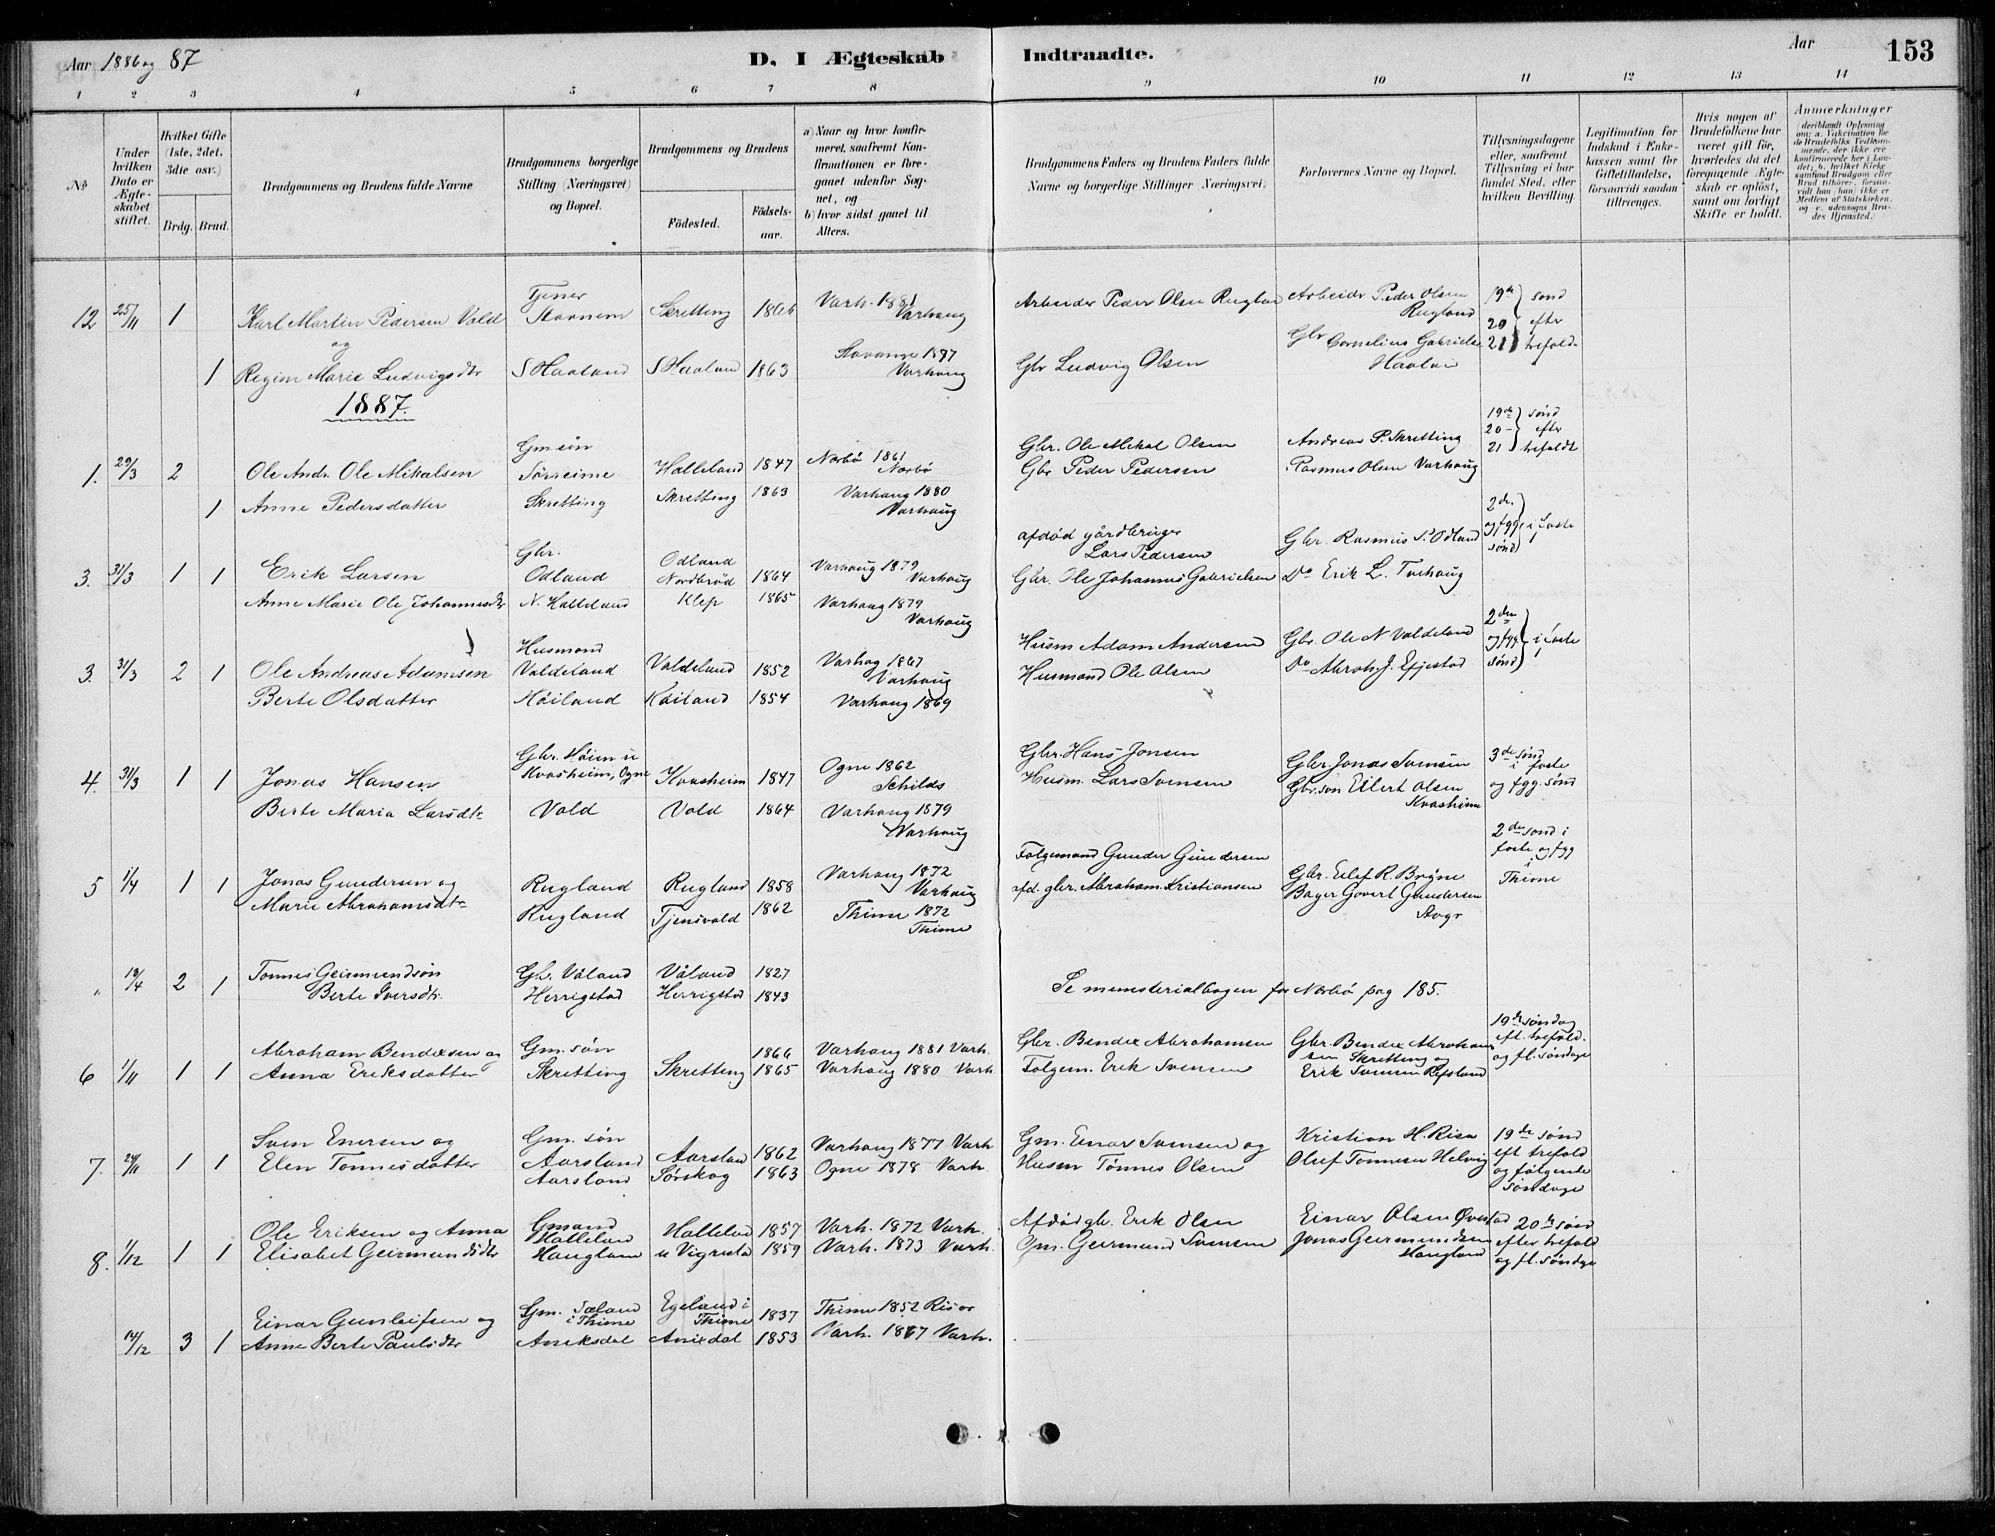 Aar 1886 og 87
D. I Ægteskab Indtraadte.
Aar 153
1 2 3 4 5 6 7 8 9 10 11 12 13 14
No
Under hvilken Dato er Ægteskabet stiftet.
Hvilket Gifte (1ste, 2det, 3die osv.)
Brdg. Brud.
Brudgommens og Brudens fulde Navne
Brudgommens borgerlige Stilling (Næringsvei) og Bopæl.
Brudgommens og Brudens
Födested.
Födsels-aar.
a) Naar og hvor konfirmeret, saafremt Konfirmationen er foregaaet udenfor Sognet, og
b) hvor sidst gaaet til Alters.
Brudgommens Faders og Brudens Faders fulde Navne og borgerlige Stillinger Næringsvei.
Forlovernes Navne og Bopæl.
Tillysningsdagene eller, saafremt Tillysning ei har fundet Sted, efter hvilken Bevilling.
Legitimation for Indskud i Enkekassen samt for Giftetilladelse, forsaavidt saadan tiltrænges.
Hvis nogen af Brudefolkene har været gift før, hvorledes da det foregaaende Ægteskab er oplöst, samt om lovligt Skifte er holdt.
Anmærkninger
(deriblandt Oplysning om: a. Vakcination for de Brudefolks Vedkommende, der ikke ere konfirmerede her i Landet; b. hvilket Kirkesamfund Brudgom eller Brud tilhörer, forsaavidt han (hun) ikke er Medlem af Statskirken, og c. udensogns Brudes Hjemsted.
12 25/11 1 Karl Martin Pedersen Vold Tjener Stavnem Skretting 1866 Varh. 1881 Varhaug Arbeider Peder Olsen Rugland Arbeider Peder Olsen Rugland 19de 20 21 sønd efter trefold.
og
1 Regine Marie Ludvigsdtr S Haaland S Haaland 1863 Varhaug Gbr Ludvig Olsen Gbr Cornelius Gabrielse Haaland
1887.
1. 29/3 2 Ole Andr. Ole Mikalsen Gm. søn Hølleland 1847 Norbø 1861 Norbø Gbr. Ole Mikal Olsen Andreas P. Skretting 19de 20- 21 sønd efter trefoldt
1 Anne Pedersdatter Skretting Skretting 1863 Varhaug 1880 Varhaug Gbr Peder Pedersen Rasmus Olsen Varhaug
3. 31/3 1 1 Erik Larsen Gbr. Odland Odland Nordbrød 1864 Varhaug 1879 Varhaug afdød gårdbruger Lars Pedersen Gbr. Rasmus P. Odland 2den og fgg sønd i faste
Anne Marie Ole Johannesdtr N. Hølleland Klep 1865 Varhaug 1879 Varhaug Gbr. Ole Johannes Gabrielsen Do Erik L. Tuehaug
3. 31/3 2 1 Ole Andreas Adamsen Husmand Valdeland Valdeland 1852 Varhog 1867 Varhaug Husm Adam Andersen Gbr. Ole N Valdeland 2den og fgg sønd i faste
Berte Olsdatter Høiland Høiland 1854 Varhaug 1869 Husmand Ole Olsen Do Abrah. J. Efjestad
4. 31/3 1 1 Jonas Hansen Gbr. Høiem u Kvasheim, Ogne Kvasheim 1847 Ogne 1862 Schilds Gbr. Hans Jonsen Gbr Jonas Svensen 3de sønd i faste og fgg. sønd
Berte Maria Larsdtr Vold Vold 1864 Varhaug 1879 Varhaug Husm. Lars Svensen Gbr. søn Eilert Olsen Kvasheim
5 1/4 1 1 Jonas Gundersen og Rugland Rugland 1858 Varhaug 1872 Varhaug Folgemand Gunder Gundersen Gbr. Eilef R. Bryne 2den sønd i faste og fgg i Thime
Marie Abrahamsdtr Rugland Tjensvold 1862 Thime 1872 Thime afd. gbr. Abraham Kristiansen Bager Govert Gundersen Stvgr
" 13/4 2 1 Tonnes Geirmundsøn Gb. Våland Våland 1827
Berte Iversdtr. Herrigstad Herrigstad 1843 Se menisterialbogen for Norbø pag 185.
6 1/11 1 1 Abraham Bendixsen og Gm. søn 1866 Varhaug 1881 Varh. Gbr. Bendix Abrahamsen Gbr. Bendix Abrahamsen Skretting og 19de søndag eft. trefold. og fl. søndage
Anna Eriksdatter Skretting Skretting 1865 Varhaug 1880 Varh Folgem. Erik Svensen Erik Svensen Refsland
7. 24/11 1 1 Sven Enersen og Gm. søn Aarsland Aarsland 1862 Varhaug 1877 Varh Gm. Einar Svensen og Kristian H. Risa 19de sønd eft trefold og følgende søndage
Elen Tonnesdatter Aarsland Sørskog 1863 Ogne 1878 Varh. Husm Tønnes Olsen Oluf Tonnesen Helvig
8. 1/12 1 1 Ole Eriksen og Anna Gmand Hølleland Hølleland 1857 Varh. 1872 Varh. Afdød gbr. Erik Olsen Einar Olsen Øvestad 20de sønd efter trefold og fl. søndge
Elisabet Geirmundsdtr Hauglan u Vigresta 1859 Varh. 1873 Varh. Gm. Geirmund Svensen Jonas Geirmundsen Haugland
14/12 3 1 Einar Gunleifsen og Gm. Sæland i Thime Egeland i Thime 1837 Thime 1852
Anne Berte Paulsdtr Aniksdal Anixdal 1853 Varh. 1867 Varh.